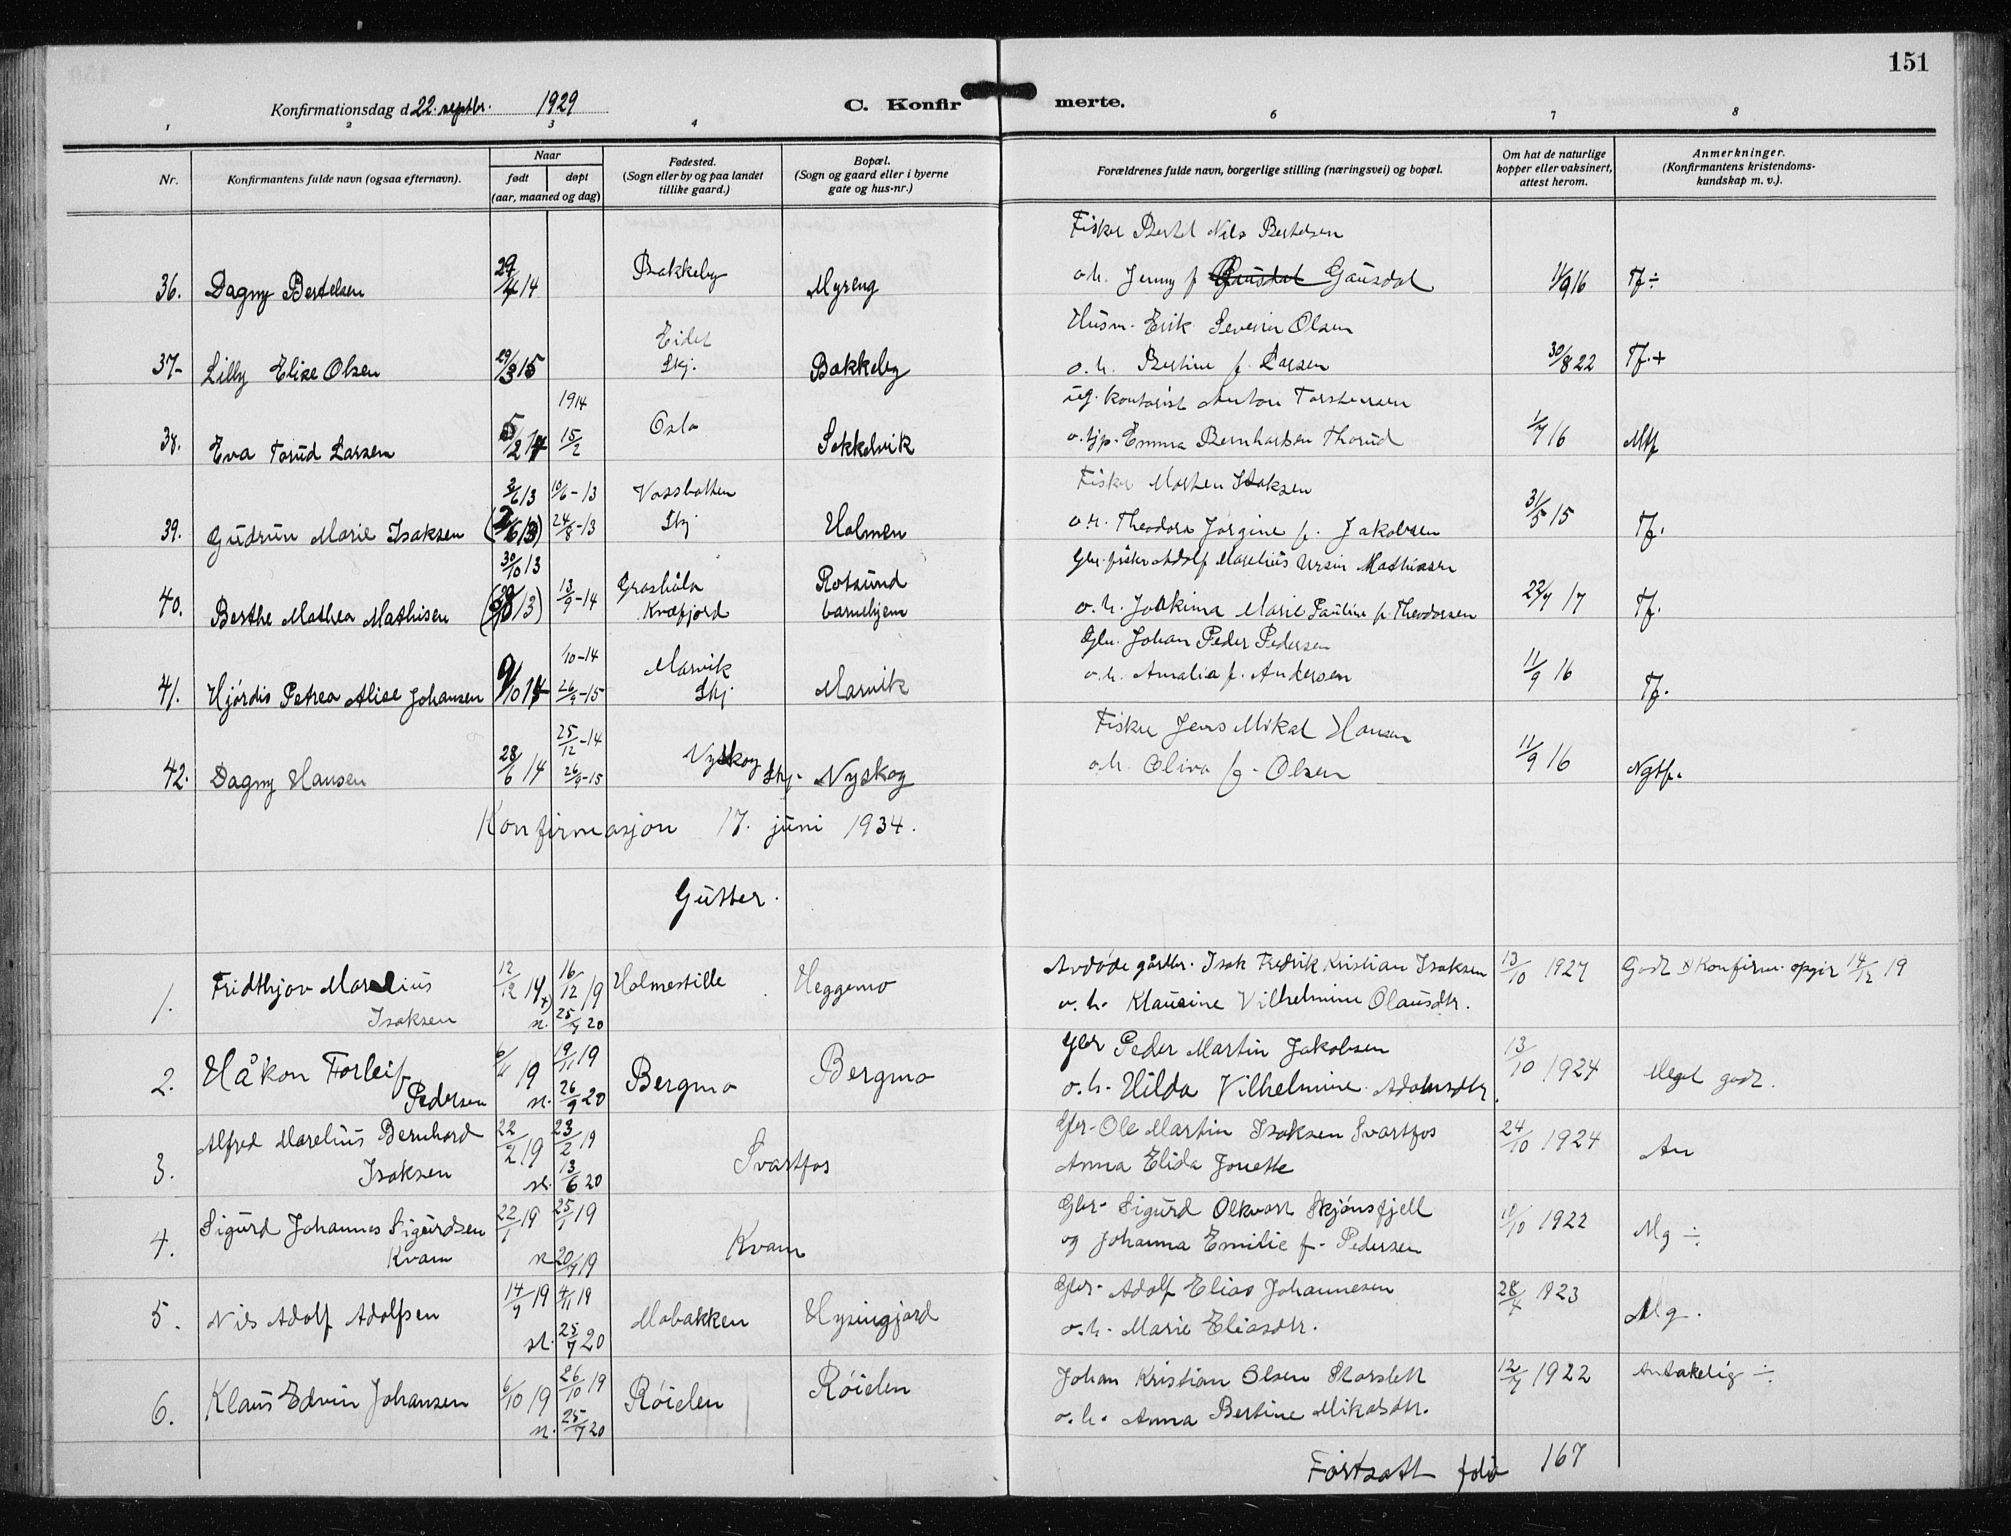 151
Konfirmationsdag d. 22. septbr. 1929
C. Konfirmerte.
1 2 3 4 6 7 8
Nr.
Konfirmantens fulde navn (ogsaa efternavn).
Naar
født døpt
(aar, maaned og dag)
Fødested.
(Sogn eller by og paa landet
tillike gaard.)
Bopæl.
(Sogn og gaard eller i byerne
gate og hus-nr.)
Forældrenes fulde navn, borgerlige stilling (næringsvei) og bopæl.
Om hat de naturlige
kopper eller vaksinert,
attest herom.
Anmerkninger.
(Konfirmantens kristendoms-
kundskap m. v.).
Fisker Bertel Nils Bertelsen
36. Dagny Bertelsen 29/4 14 Bakkeby Myreng o.h. Jenny f. Gausdal 11/9 16 Tf ÷
Husm. Erik Severin Olsen
37. Lilly Elise Olsen 29/3 15 Eidet Skj. Bakkeby o.h. Bertine f. Larsen 30/8 22 Tf. +
ug. kontorist Anton Torstensen
38. Eva Torud Larsen 5/2 14 1914 15/2 Oslo Sokkelvik o. tjp. Emma Bernhartsen Thorud 1/7 16 Mtf
Fisker Morten Isaksen
39. Gudrun Marie Isaksen 2/6 13 (2/6 13) 10/6-13 24/8-13 Vassbotten Skj. Holmen o.h. Theodora Jorgine f. Jakobsen 31/5 15 Tf.
Gbr. fisker Adolf Marelius Ursin Mathiasen
40. Berthe Mathea Mathisen 30/10 13 13/9-14 Kvæfjord Rotsund barnehjem o.h. Joakima Marie Pauline f. Theodorsen 22/7 17 Tf.
Gbr. Johan Peder Pedersen
41. Hjørdis Petrea Alise Johansen 9/10 14 /10-14 26/9-15 Marvik Skj Marvik o.h. Amalia f. Andersen 11/9 16 Tf.
Fisker Jens Mikal Hansen
42. Dagny Hansen 28/6 14 25/12-14 26/9-15 Nyskog Skj. Nyskog o.h. Oliva f. Olsen 11/9 16 Ngtf.
Konfirmasjon 17. juni 1934.
Gutter.
1. Fridthjov Marelius Isaksen 12/12 16/12 19 st. 25/7 20 Holmestille Heggemo Avdøde gårdbr. Isak Fredrik Kristian Isaksen
o.h. Klausine Vilhelmine Olausdtr. 13/10 1927 Godt Konfirm. opgir 14/12 19
2. Håkon Torleif Pedersen 6/11 19 19/11 19 st. 26/9 20 Bergmo Bergmo Gbr Peder Martin Jakobsen
o.h. Hilda Vilhelmine Adolvsdtr. 13/10 1924 Meget godt.
3. Alfred Marelius Bernhard Isaksen 22/2 19 23/2 19 st. 13/6 20 Svartfos Gbr. Ole Martin Isaksen Svartfos
Anna Elida Jonette 24/10 1924 An
4. Sigurd Johannes Sigurdsen Kvam 22/1 19 25/1 19 st. 20/7 19 Kvam Gbr. Sigurd Olkvart Skjønsfjell
og Johanna Emilie f. Pedersen 10/10 1922 Mg ÷
5. Nils Adolf Adolfsen 14/9 19 4/11 19 st. 25/7 20 Mobakken Hysingjord Gbr. Adolf Elias Johannesen
o.h. Marie Eliasdtr. 28/4 1923 Mg.
6. Klaus Edvin Johansen 6/10 19 26/10 19 st. 25/7 20 Røielen Røielen Johan Kristian Olsen Storslett
o.h. Anna Bertine Mikalsdtr. 12/7 1922 Antakelig ÷
Fortsatt folio 167